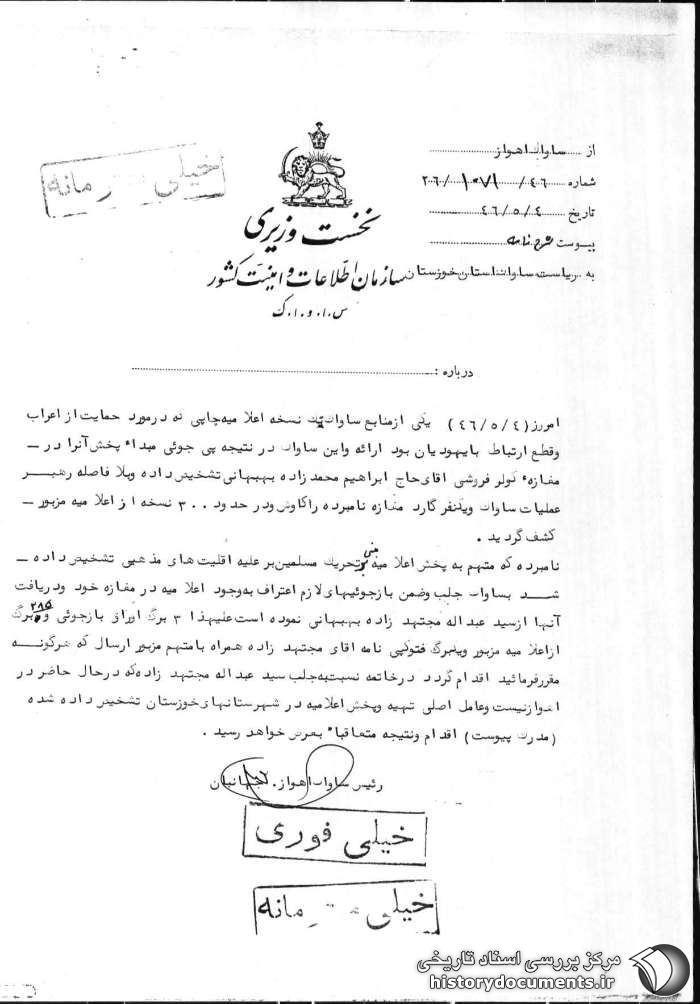 از ساواک اهواز
شماره ٢٠٦/١٠٧١/٤٠٦
خیلی رمانه
تاریخ ٤٦/٥/٤
پیوست شرح نامه
نخست وزیری
به ریاست ساواک استان خوزستان
سازمان اطلاعات و امنیت کشور
س.ا.و.ا.ک
درباره :
امروز (٤٦/٥/٤) یکی از منابع ساواک یک نسخه اعلامیه چاپی که در مورد حمایت از اعراب
و قطع ارتباط با یهودیان بود ارائه و این ساواک در نتیجه پی جوئی مبداء پخش آنرا در ـ
مغازه کولر فروشی آقای حاج ابراهیم محمد زاده بهبهانی تشخیص داده و بلا فاصله رهبر
عملیات ساواک و یکنفر گارد مغازه نامبرده را کاوش و در حدود ٣٠٠ نسخه از اعلامیه مزبور ـ
کشف گردید .
نامبرده که متهم به پخش اعلامیه مبنی بر تحریک مسلمین بر علیه اقلیت های مذهبی تشخیص داده ـ
شد بساواک جلب و ضمن بازجوئیهای لازم اعتراف بوجود اعلامیه در مغازه خود و دریافت
آنها از سید عبداله مجتهد زاده بهبهانی نموده است علیهذا ٣ برگ اوراق بازجوئی و ٢٨٥ برگ
از اعلامیه مزبور و یکبرگ فتوکپی نامه آقای مجتهد زاده همراه با متهم مزبور ارسال که هرگونه
مقرر فرمائید اقدام گردد در خاتمه نسبت به جلب سید عبداله مجتهد زاده که در حال حاضر در
اهواز نیست و عامل اصلی تهیه و پخش اعلامیه در شهرستانهای خوزستان تشخیص داده شده
(مدرک پیوست) اقدام و نتیجه متعاقبا" بعرض خواهد رسید .
رئیس ساواک اهواز . جهانبان
خیلی فوری
خیلی مانه
مرکز بررسی اسناد تاریخی
historydocuments.ir